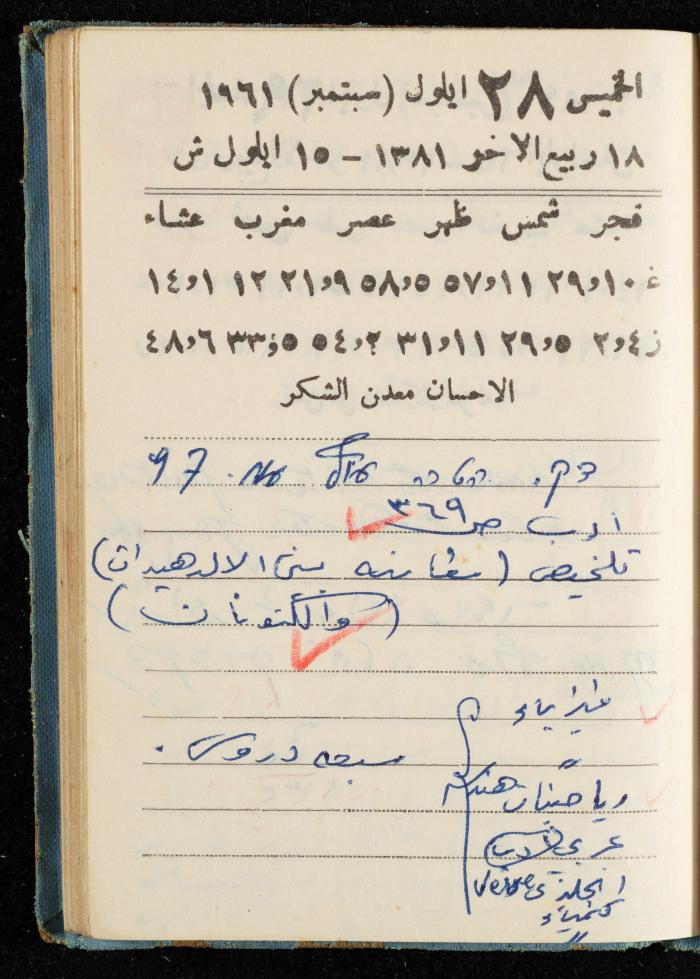 الخميس ٢٨ ايلول (سبتمبر) ١٩٦١
١٨ ربيع الاخر ١٣٨١ – ١٥ ايلول ش
فجر شمس ظهر عصر مغرب عشاء
غ ١٠و ٢٩و١١ ٥٧و٥ ٥٨و٩ ٢١و١٢ ١و١٤
ز ٤و٢ ٥و٢٩ ١١و٣١ ٢و٥٤ ٥و٣٣ ٦و٤٨
الاحسان معدن الشكر
פרק
أدب ص ٣٦٩
تلخيص (مقارنه بين الالدهيدات)
(والكتونات)
فيزياء
سبعه دروس.
رياضيات هندسه
عربي أدب
انجلزي Verse
كمياء